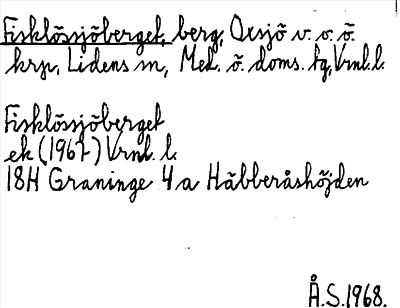 Fisklössjöberget, berg, Oxsjö v. o. ö.
krp, Lidens sn, Med. ö. doms. fg, Vrnl. l.
Fisklössjöberget
ek (1967) Vrnl. l.
18H Graninge 4a Häbberåshöjden
Å.S. 1968.